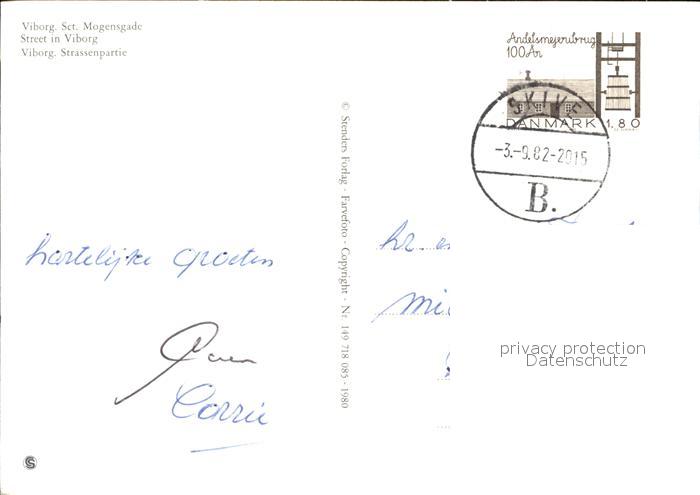 Viborg. Sct. Mogensgade
Street in Viborg
Viborg. Strassenpartie
Andelsmejeribrug
100 År
DANMARK 1.80
SKIVE
-3.-9.82-2015
B.
© Stenders Forlag · Farvefoto · Copyright · Nr. 149 718 085 · 1980
hartelijke groeten
Corrie
hr. en
privacy protection
Datenschutz